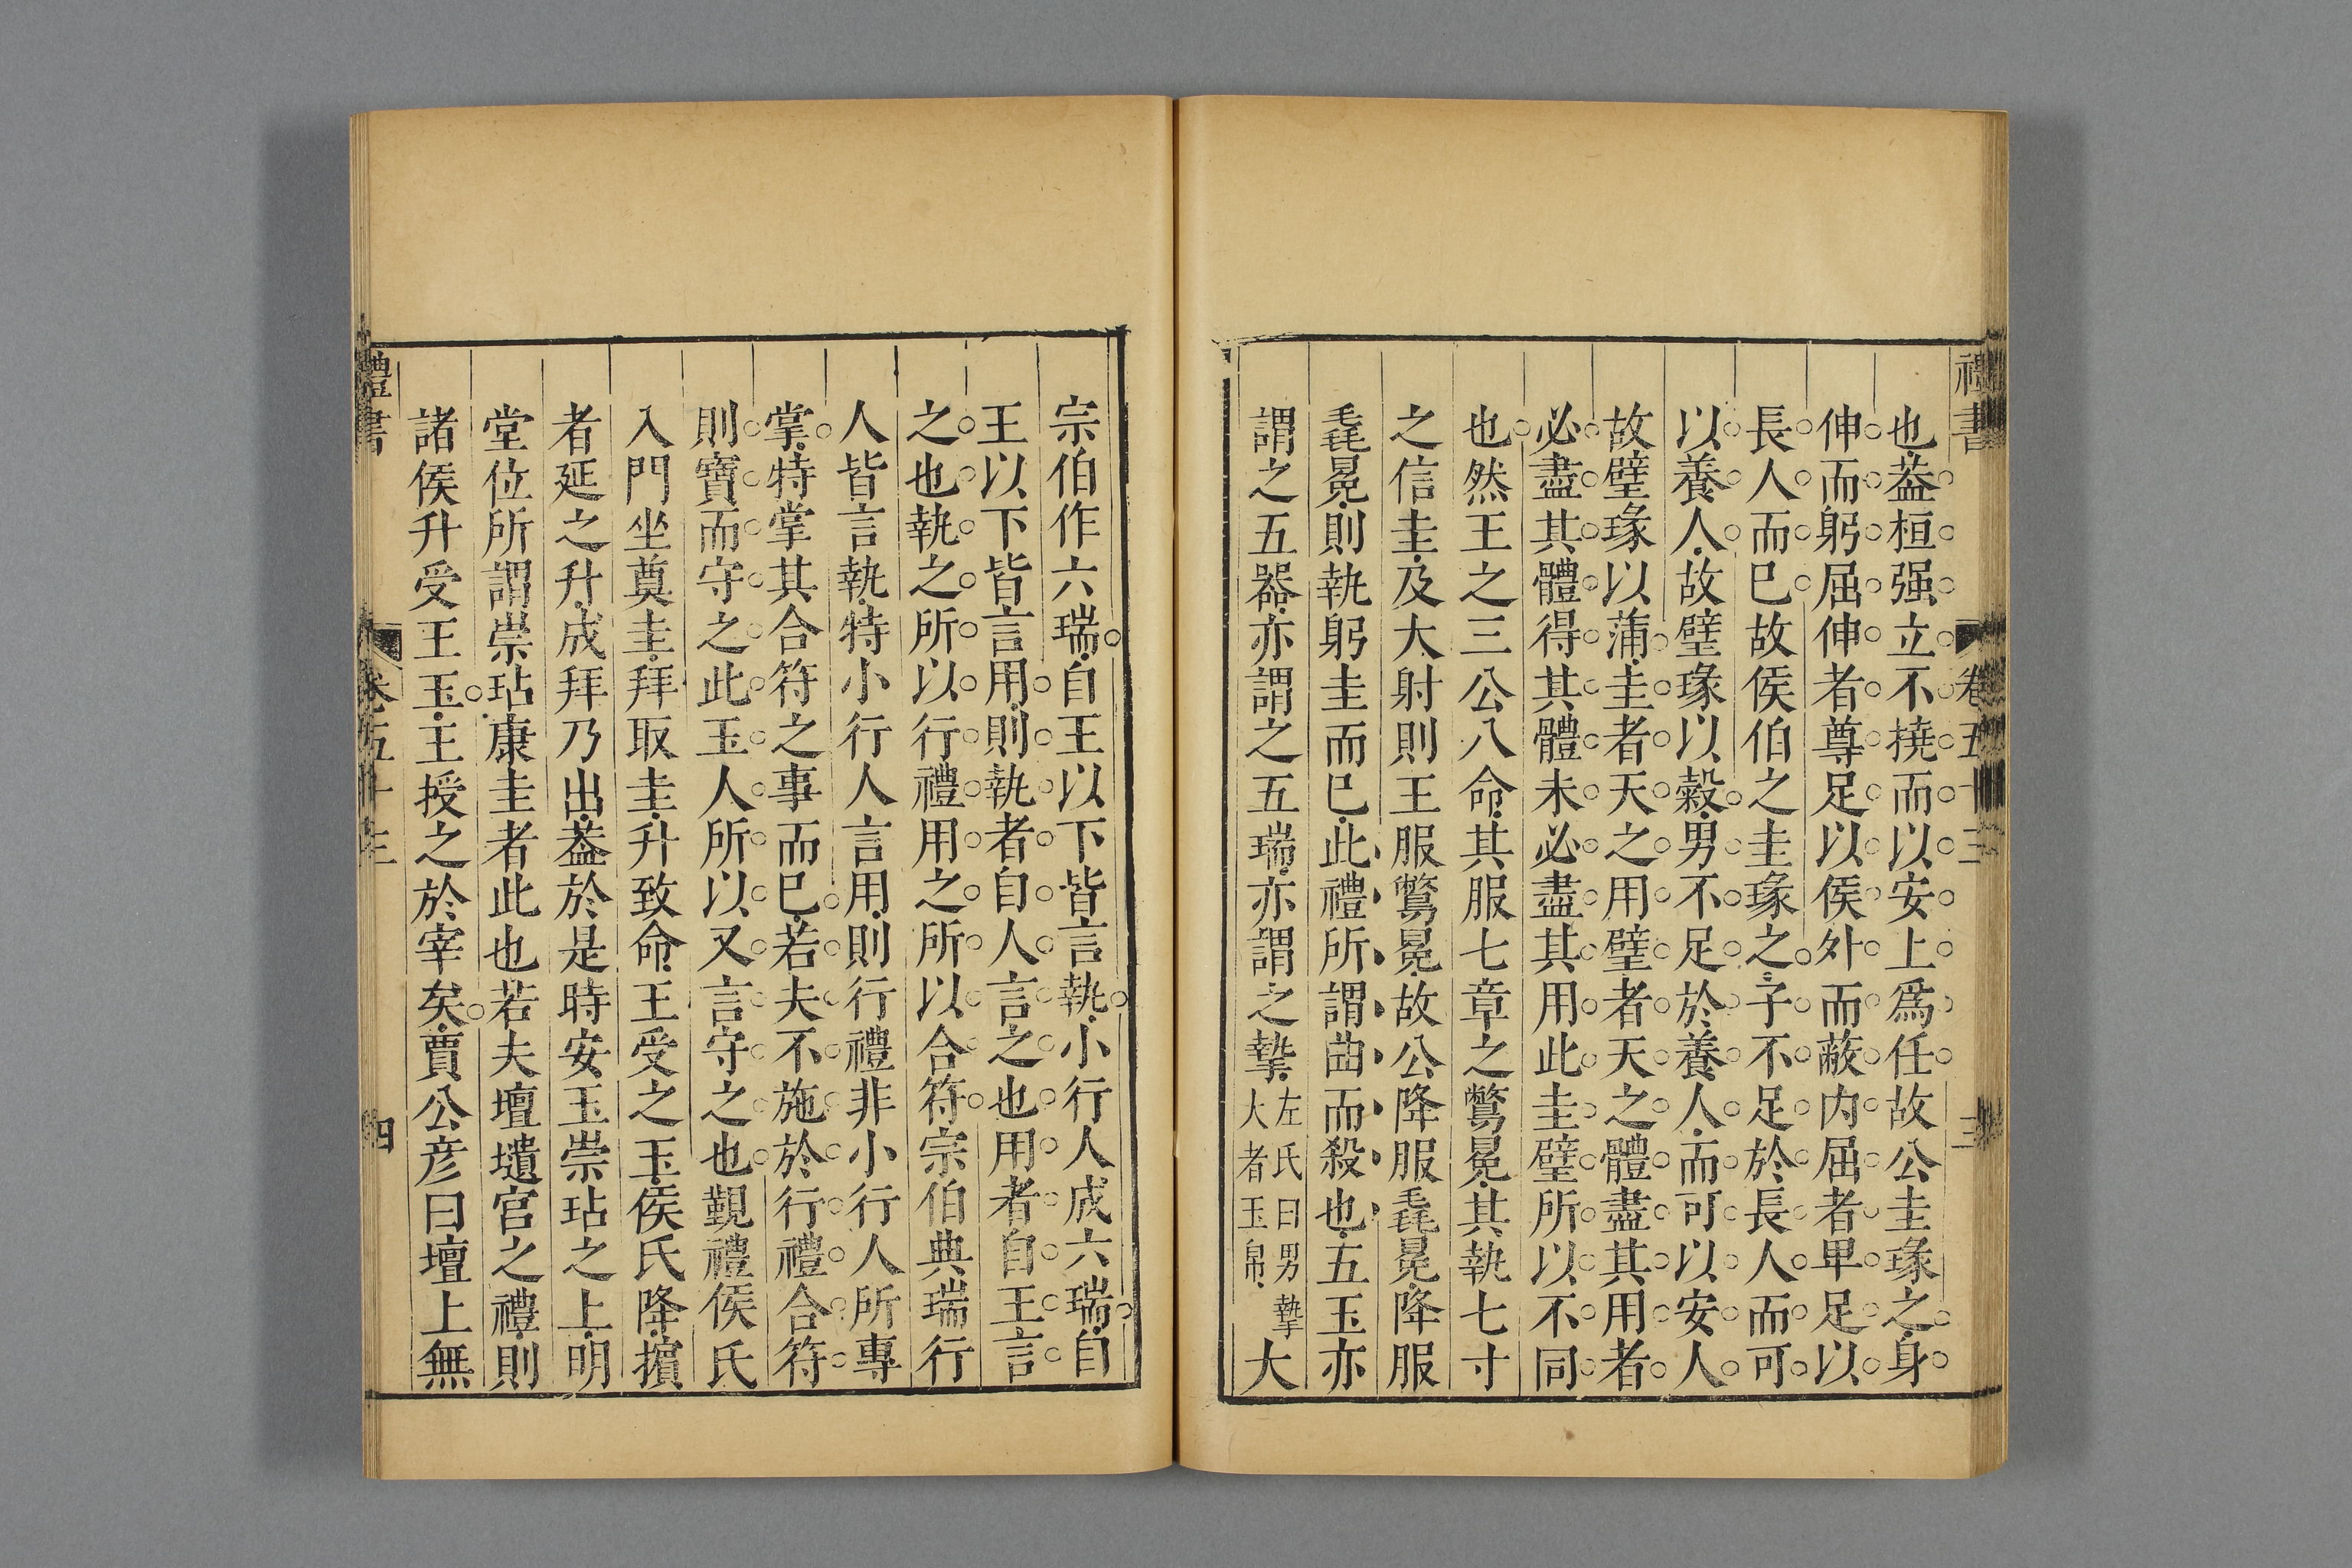 禮書
卷五十三
三
也蓋桓强立不撓而以安上爲任故公圭瑑之身
伸而躬屈伸者尊足以侯外而蔽内屈者卑足以
長人而已故侯伯之圭瑑之子不足於長人而可
以養人故璧瑑以榖男不足於養人而可以安人
故璧瑑以蒲圭者天之用璧者天之體盡其用者
必盡其體得其體未必盡其用此圭璧所以不同
也然王之三公八命其服七章之鷩冕其執七寸
之信圭及大射則王服鷩冕故公降服毳冕降服
毳冕則執躬圭而已此禮所謂曲而殺也五玉亦
謂之五器亦謂之五瑞亦謂之摯左氏曰男摯大者玉帛大
宗伯作六瑞自王以下皆言執小行人成六瑞自
王以下皆言用則執者自人言之也用者自王言
之也執之所以行禮用之所以合符宗伯典瑞行
人皆言執特小行人言用則行禮非小行人所專
掌特掌其合符之事而已若夫不施於行禮合符
則寶而守之此玉人所以又言守之也覲禮侯氏
入門坐奠圭拜取圭升致命王受之玉侯氏降擯
者延之升成拜乃出蓋於是時安玉崇坫之上明
堂位所謂崇坫康圭者此也若夫壇壝宫之禮則
諸侯升受王玉主授之於宰矣賈公彦曰壇上無
禮書
卷五十三
四